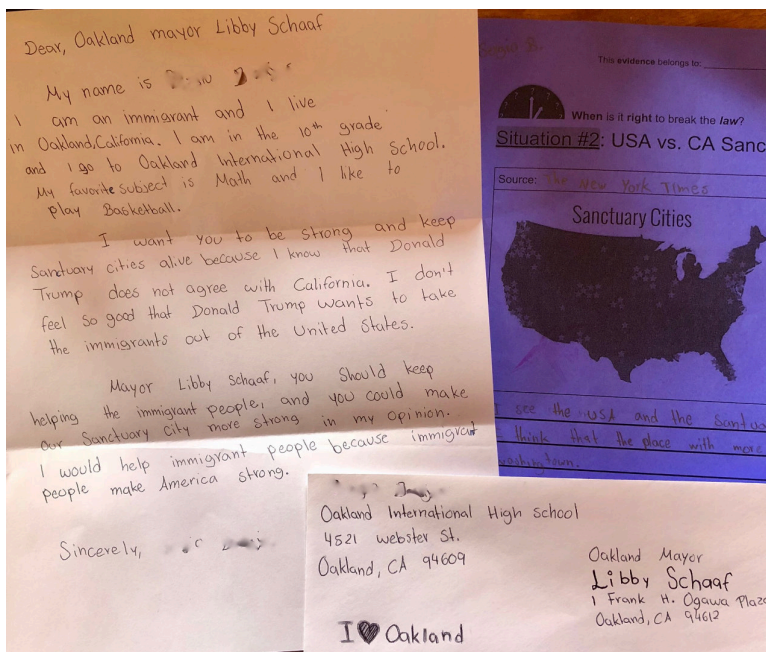 Dear, Oakland mayor Libby Schaaf
My name is
I am an immigrant and I live
in Oakland, California. I am in the 10th grade
and I go to Oakland International High School.
My favorite subject is Math and I like to
play Basketball.
I want you to be strong and keep
Sanctuary cities alive because I know that Donald
Trump does not agree with California. I don't
feel so good that Donald Trump wants to take
the immigrants out of the United States.
Mayor Libby Schaaf, you should keep
helping the immigrant people, and you could make
our Sanctuary City more strong in my opinion.
I would help immigrant people because immigrat
people make America strong.
Sincerely,
This evidence belongs to:
When is it right to break the law?
Situation #2: USA vs. CA Sanc
Source: The New York Times
Sanctuary Cities
I see the USA and the Santua
I think that the place with more
washingtown.
Oakland International High School
4521 Webster St.
Oakland, CA 94609
I ♥ Oakland
Oakland Mayor
Libby Schaaf
1 Frank H. Ogawa Plaza
Oakland, CA 94612